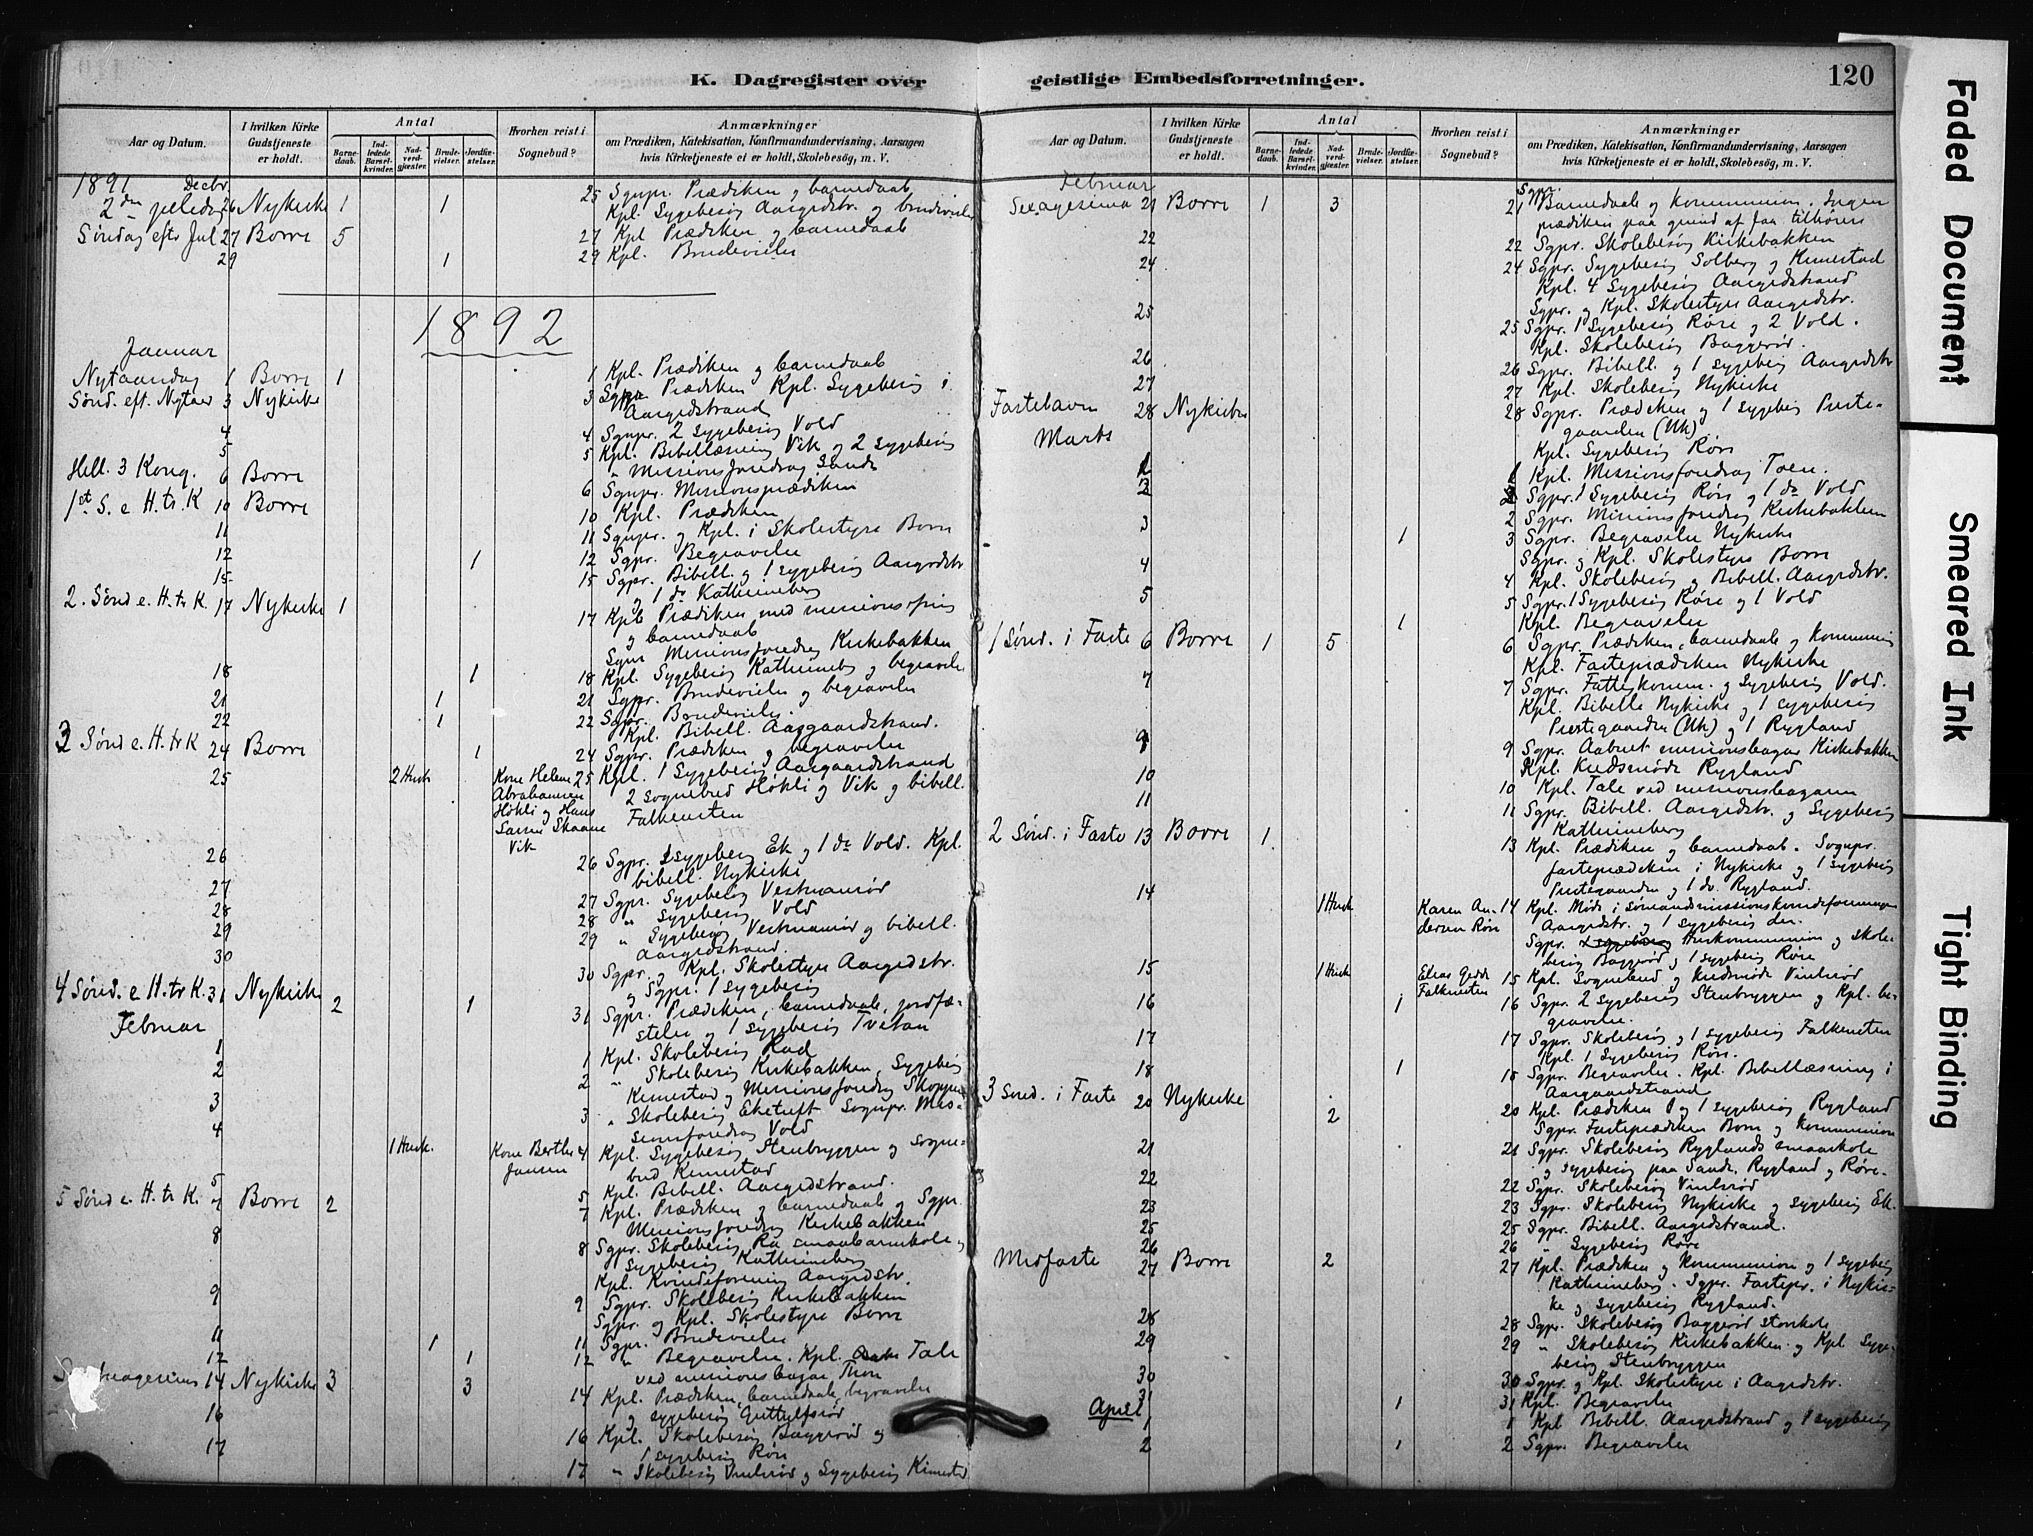 K. Dagregister over geistlige Embedsforretninger.
120
Aar og Datum.
I hvilken Kirke Gudstjeneste er holdt.
Antal
Barnedaab.
Indledede Barselkvinder.
Nadverdgjæster.
Brudevielser.
Jordfæstelser.
Hvorhen reist i Sognebud?
Anmærkninger
om Prædiken, Katekisation, Konfirmandundervisning, Aarsagen
hvis Kirketjeneste ei er holdt, Skolebesøg, m. V.
1891 Decbr.
25 Sgnpr. Prædiken og barnedaab
2den juledag 26 Nykirke 1 1 Kpl. Sygebesøg Aargrdstr. og brudevielse
Søndag eft. Jul 27 Borre 5 27 Kpl. Prædiken og barnedaab
29 1 29 Kpl. Brudevielse
1892
Januar
Nytaarsdag 1 Borre 1 1 Kpl. Prædiken og barnedaab
Sønd. eft. Nytaar 3 Nykirke 3 Sgpr. Prædiken Kpl. Sygebesøg i
Aargrdstrand
4 4 Sgnpr. 2 Sygebesøg Vold
5 5 Kpl. Bibellæsning Vik og 2 sygebesøg
" Missionsforedrag Sande
Hell. 3 Kong. 6 Borre 6 Sgnpr. Missionsprædiken
1st. S. e H. tr. K 10 Borre 10 Kpl. Prædiken
11 11 Sgnpr. og Kpl. i Skolestyre Borre
12 1 12 Sgpr. Begravelse
15 15 Sgpr. Bibell. og 1 sygebesøg Aargrdstr.
og 1 do Kathrineberg
2. Sønd e. H. tr K. 17 Nykirke 1 17 Kpl. Prædiken med missionsofring
og barnedaab
Sgnr Missionsforedrag Kirkebakken
18 1 18 Kpl. Sygebesøg Kathrineb. og begravelse
21 1 21 Sgpr. Brudevielse og begravelse
22 1 22 Sgpr. Brudevielse.
Kpl. Bibell. Aasgaardstrand.
3 Sønd e. H. tr K 24 Borre 1 24 Sgpr. Prædiken og begravelse
25 2 Husk Kone Helene 25 Kpl. 1 Sygebesøg Aargaardstrand
Abrahamsen 2 sognebud Høkli og Vik og bibell.
Høkli og Hans Falkensten
Larsen Skaane
Vik
26 26 Sgpr. sygebesøg Ek og 1 do Vold. Kpl.
bibell. Nykirke
27 27 Sgpr. Sygebesøg Vestmanrød
28 28 " Sygebesøg Vold
29 29 " Sygebesøg Vestmanrød og bibell.
Aargrdstrand.
30 30 Sgpr. og Kpl. Skolestyre Aargrdstr.
og Sgpr. 1 sygebesøg
4 Sønd. e H. tr K. 31 Nykirke 2 1 31 Sgpr. Prædiken, barnedaab, jordfæ-
stelse og 1 sygebesøg Tvetan
Februar
1 1 Kpl. Skolebesøg Rød
2 2 " Skolebesøg Kirkebakken, Sygebesøg
Kimestad og Missionsforedrag Skoppum
3 3 " Skolebesøg Eketuft Sognpr. Mis-
sionsforedrag Vold
4 1 Husk. Kone Berthe 4 Kpl. Sygebesøg Stenbryggen og sogne-
Jansen bud Kimestad
5 5 Kpl. Bibell. Aargrdstrand.
5 Sønd e. H. tr K. 7 Borre 2 7 Kpl. Prædiken og barnedaab og Sgpr.
Missionsforedrag Kirkebakken
8 8 Sgpr. Skolebesøg Ra smaabarnskole og
sygebesøg Kathrineberg
Kpl. Kvindeforening Aargrdstr.
9 9 Sgpr. Skolebesøg Kirkebakken
Sgpr. og Kpl. Skolestyre Borre
11 1 11 Sgpr. Brudevielse
12 1 12 " Begravelse. Kpl. Tale
ved missionsbazar Thon
14 Nykirke 3 3 14 Kpl. Prædiken, barnedaab, begravelse
og sygebesøg
16 16 Kpl. Skolebesøg Baggerød og
1 sygebesøg Røre
17 17 " Skolebesøg Vinlsrød og Sygebesøg Kimestad
Aar og Datum.
I hvilken Kirke Gudstjeneste er holdt.
Antal
Barnedaab.
Indledede Barselkvinder.
Nadverdgjæster.
Brudevielser.
Jordfæstelser.
Hvorhen reist i Sognebud?
Anmærkninger
om Prædiken, Katekisation, Konfirmandundervisning, Aarsagen
hvis Kirketjeneste ei er holdt, Skolebesøg, m. V.
Februar
Sexagesima 21 Borre 1 3 21 Sgpr. Barnedaab og Kommunion. Ingen
prædiken paa grund af faa tilhørere
22 22 Sgpr. Skolebesøg Kirkebakken
24 24 Sgpr. Sygebesøg Solberg og Kimestad
Kpl. 4 Sygebesøg Aargrdstrand
Sgpr. og Kpl. Skolestyre Aargrdstr.
25 25 Sgpr. 1 Sygebesøg Røre og 2 Vold.
Kpl. Skolebesøg Baggerød.
26 26 Sgpr. Bibell. og 1 sygebesøg Aargrdstr
27 27 Kpl. Skolebesøg Nykirke
Fastelavn 28 Nykirke 28 Sgpr. Prædiken og 1 sygebesøg Preste-
gaarden (Nk)
Kpl. Sygebesøg Røre
Marts
1 1 Kpl. Missionsforedrag Toen.
2 Sgpr. 1 Sygebesøg Røre og 1 do Vold
2 Sgpr. Missionsforedrag Kirkebakken
3 1 3 Sgpr. Begravelse Nykirke
Sgpr. og Kpl. Skolestyre Borre
4 4 Kpl. Skolebesøg og Bibell. Aargrdstr.
5 5 Sgpr. 1 Sygebesøg Røre og 1 Vold
1 Kpl. Begravelse
1 Sønd. i Faste 6 Borre 1 5 6 Sgpr. Prædiken, barnedaab og Kommunion
Kpl. Fasteprædiken Nykirke
7 7 Sgpr. Fattigkomm. og Sygebesøg Vold.
Kpl. Bibelle Nykirke og 1 sygebesøg
Prestegaarden (Nk) og 1 Rygland
9 9 Sgpr. Aabnet missionsbazar Kirkebakken
Kpl. Rygland
10 10 Kpl. Tale ved missionsbazaren
11 11 Sgpr. Bibell. Aargrdstr. og Sygebesøg
Kathrineberg
2 Sønd. i Faste 13 Borre 1 13 Kpl. Prædiken og barnedaab. Sognpr.
fasteprædiken i Nykirke og 1 sygebesøg
Prestegaarden og 1 do. Rygland.
14 1 Husk Karen An- 14 Kpl. Møde i sømandsmissionskvindeforeningen
dersen Røre Aargrdstr. og 1 sygebesøg der.
Sgpr. Huskommunion og skole-
besøg Baggerød og 1 sygebesøg Røre
15 1 Husk Elias Gedde 15 Kpl. Sognebud og Vinlsrød
Falkensten
16 1 16 Sgpr. 2 Sygebesøg Stenbryggen og Kpl. be-
gravelse.
17 17 Sgpr. Skolebesøg og 1 sygebesøg Falkensten
Kpl. 1 Sygebesøg Røre.
18 1 18 Sgpr. Begravelse. Kpl. Bibellæsning i
Aargaardstrand
3 Sønd. i Faste 20 Nykirke 2 20 Kpl. Prædiken og 1 sygebesøg Rygland
Sgpr. Fasteprædiken Borre og Kommunion
21 21 Sgpr. Skolebesøg Ryglands smaaskole
og sygebesøg paa Sande, Rygland og Røre.
22 22 Sgpr. Skolebesøg Vinlsrød
23 23 Sgpr. Skolebesøg Nykirke og sygebesøg Ek.
25 25 Sgpr. Bibell. Aargrdstrand.
26 26 " Sygebesøg Røre
Midfaste 27 Borre 2 27 Kpl. Prædiken og Kommunion og 1 sygebesøg
Kathrineberg. Sgpr. Fastepr. i Nykir-
ke og sygebesøg Rygland.
28 28 Sgpr. Skolebesøg Baggerød storskole
29 29 " Skolebesøg Kirkebakken og Kpl Syge-
besøg Stenbryggen
30 30 Sgpr. og Kpl. Skolestyre i Aargrdstr.
31 1 31 Kpl. Begravelse
April
1 1 Kpl Bibell. Aargrdstrand og 1 sygebesøg
2 1 2 Sgpr. Begravelse
Faded Document
Smeared Ink
Tight Binding